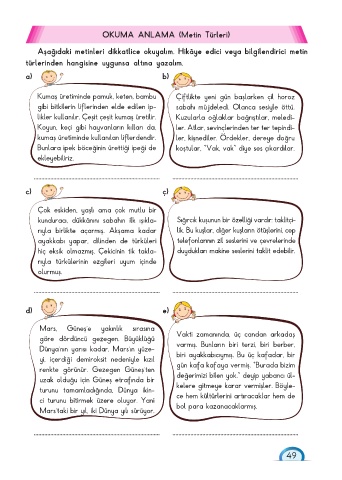 OKUMA ANLAMA (Metin Türleri)
Aşağıdaki metinleri dikkatlice okuyalım. Hikâye edici veya bilgilendirici metin
türlerinden hangisine uygunsa altına yazalım.
a)
Kumaş üretiminde pamuk, keten, bambu
gibi bitkilerin liflerinden elde edilen ip-
likler kullanılır. Çeşit çeşit kumaş üretilir.
Koyun, keçi gibi hayvanların kılları da,
kumaş üretiminde kullanılan liflerdendir.
Bunlara ipek böceğinin ürettiği ipeği de
ekleyebiliriz.
b)
Çiftlikte yeni gün başlarken çil horoz
sabahı müjdeledi. Olanca sesiyle öttü.
Kuzularla oğlaklar bağrıştılar, meledi-
ler. Atlar, sevinçlerinden ter ter tepindi-
ler, kişnediler. Ördekler, dereye doğru
koştular. "Vak, vak" diye ses çıkardılar.
c)
Çok eskiden, yaşlı ama çok mutlu bir
kunduracı, dükkânını sabahın ilk ışıkla-
rıyla birlikte açarmış. Akşama kadar
ayakkabı yapar, dilinden de türküleri
hiç eksik olmazmış. Çekicinin tik takla-
rıyla türkülerinin ezgileri uyum içinde
olurmuş.
ç)
Sığırcık kuşunun bir özelliği vardır: taklitçi-
lik. Bu kuşlar, diğer kuşların ötüşlerini, cep
telefonlarının zil seslerini ve çevrelerinde
duydukları makine seslerini taklit edebilir.
d)
Mars, Güneş'e yakınlık sırasına
göre dördüncü gezegen. Büyüklüğü
Dünya'nın yarısı kadar. Mars'ın yüze-
yi, içerdiği demiroksit nedeniyle kızıl
renkte görünür. Gezegen Güneş'ten
uzak olduğu için Güneş etrafında bir
turunu tamamladığında, Dünya ikin-
ci turunu bitirmek üzere oluyor. Yani
Mars'taki bir yıl, iki Dünya yılı sürüyor.
e)
Vakti zamanında, üç candan arkadaş
varmış. Bunların biri terzi, biri berber,
biri ayakkabıcıymış. Bu üç kafadar, bir
gün kafa kafaya vermiş. "Burada bizim
değerimizi bilen yok." deyip yabancı ül-
kelere gitmeye karar vermişler. Böyle-
ce hem kültürlerini artıracaklar hem de
bol para kazanacaklarmış.
49